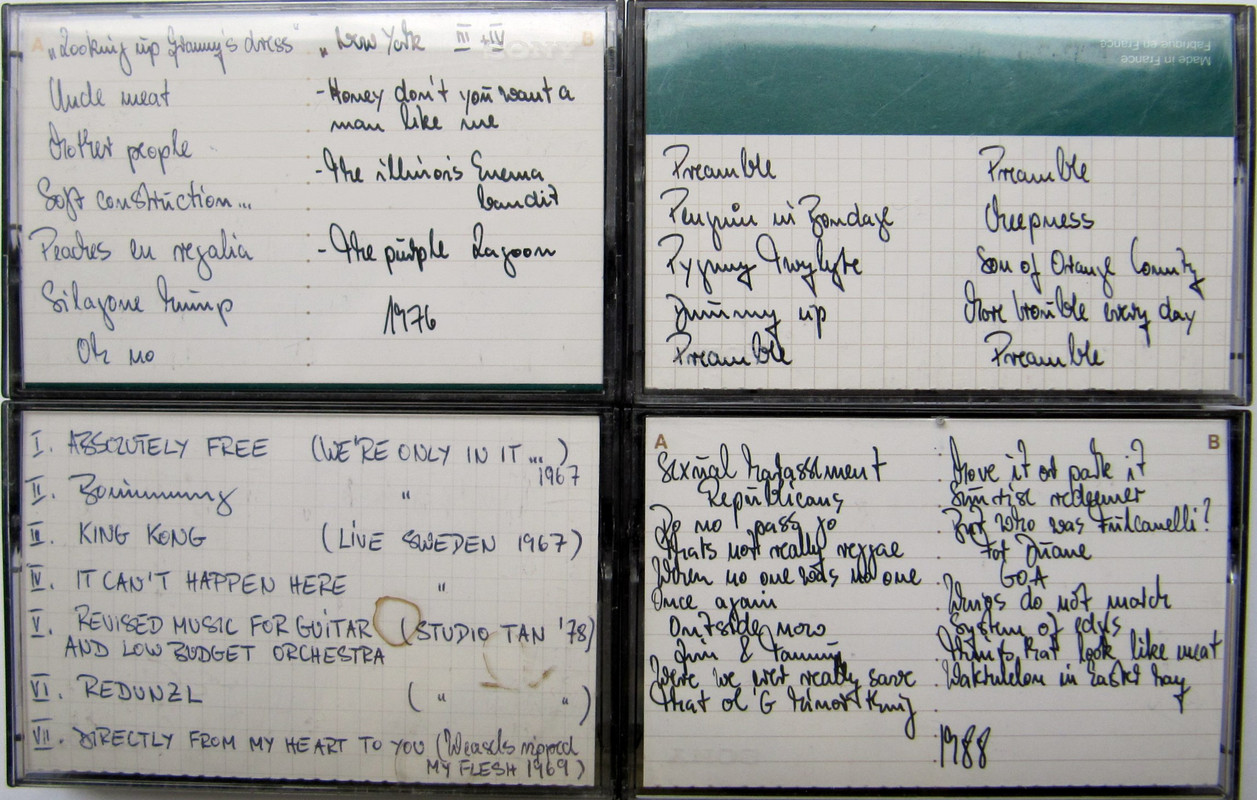 A
"Looking up Granny's dress"
Uncle meat
Mother people
Soft construction...
Peaches en regalia
Oh no
B
"New York III + IV
-Honey don't you want a
man like me
-The illinois Enema
bandit
-The purple Lagoon
1976
Fabriqué en France
Made in France
Preamble
Penguin in Bondage
Pygmy Twylyte
Dummy up
Preamble
Preamble
Cheepness
Son of Orange County
More trouble every day
Preamble
I. ABSOLUTELY FREE (WE'RE ONLY IN IT ...)
1967
II. "
III. KING KONG (LIVE SWEDEN 1967)
IV. IT CAN'T HAPPEN HERE "
V. REVISED MUSIC FOR GUITAR (STUDIO TAN '78)
AND LOW BUDGET ORCHESTRA
VI. REDUNZL ( " " )
VII. DIRECTLY FROM MY HEART TO YOU (Weasels ripped
MY FLESH 1969)
A
Sexual harassment
Republicans
Do no pass go
Thats not really reggae
When no one was no one
Once again
Outside now
Jim & Tammy
Were we ever really save
That ol G minor thing
B
Move it or park it
Sunrise redeemer
But who was Fulcanelli?
For Duane
GOA
Wings do not match
System of edges
Things that look like meat
Watermelon in Easter hay
1988